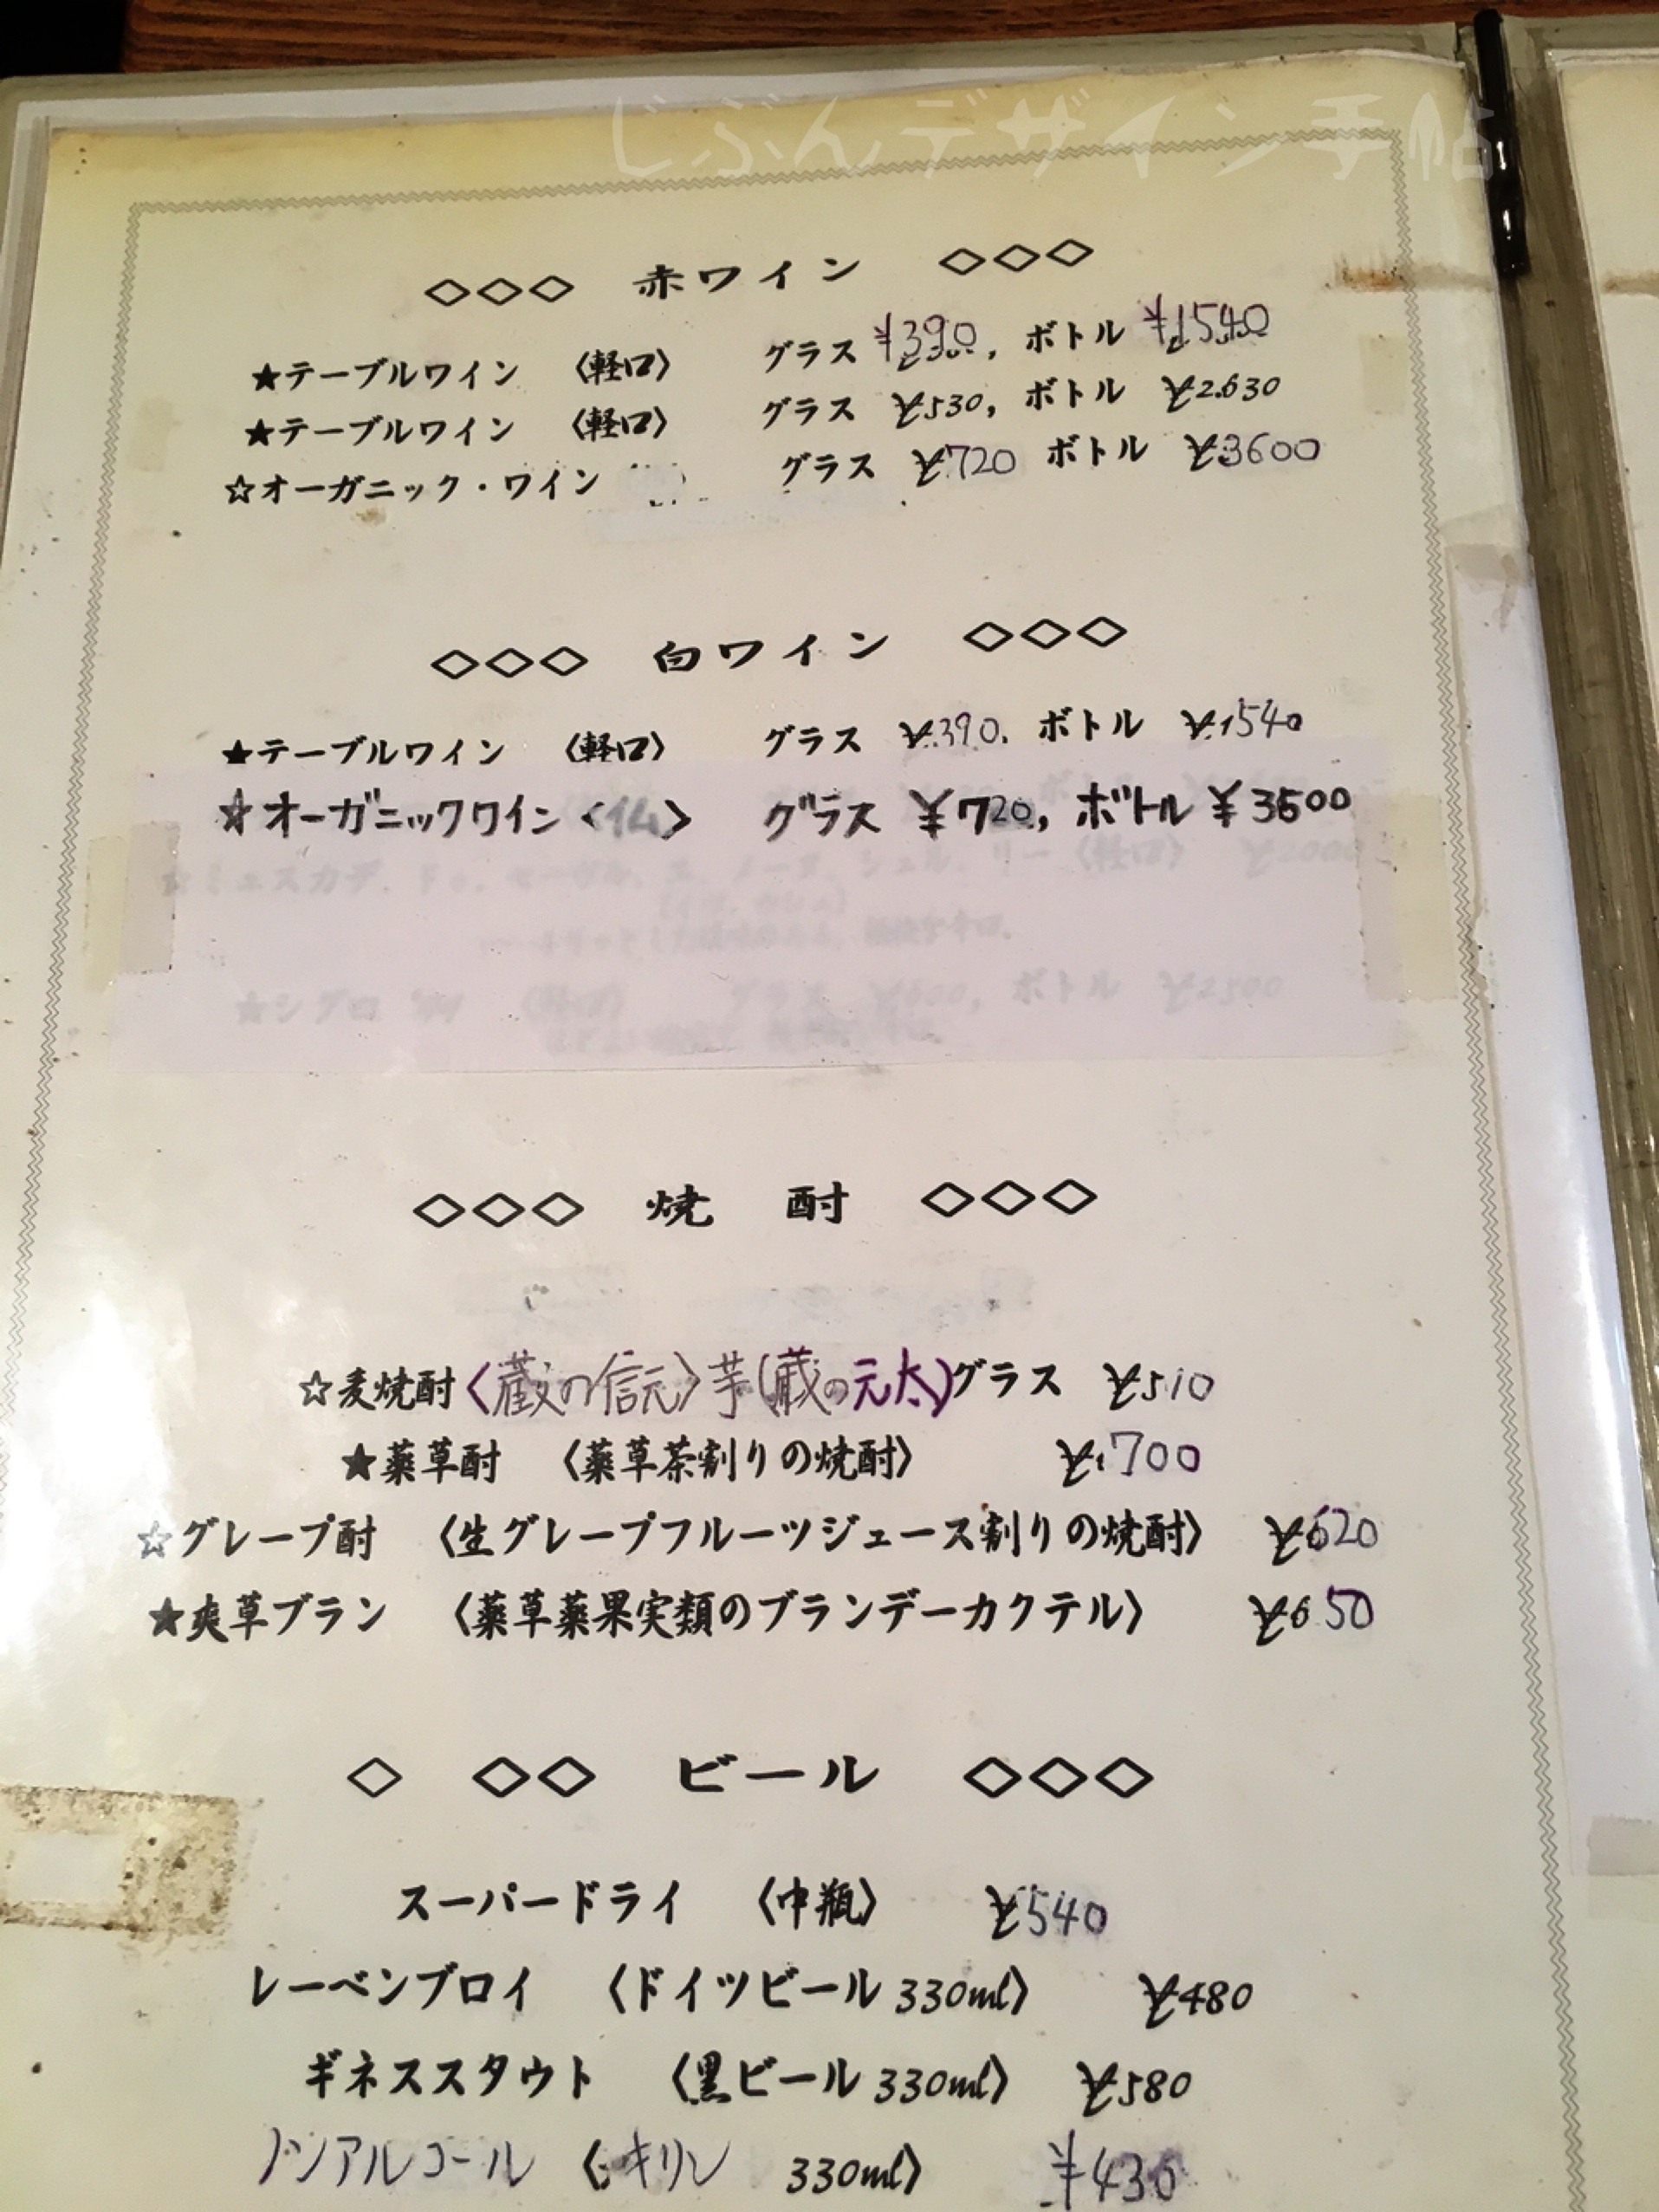 じぶんデザイン手帖
◇◇◇ 赤ワイン ◇◇◇
★テーブルワイン 〈軽口〉 グラス ¥390, ボトル ¥1540
★テーブルワイン 〈軽口〉 グラス ¥530, ボトル ¥2.630
☆オーガニック・ワイン グラス ¥720 ボトル ¥3600
◇◇◇ 白ワイン ◇◇◇
★テーブルワイン 〈軽口〉 グラス ¥390. ボトル ¥1540
☆オーガニックワイン〈仏〉 グラス ¥720, ボトル ¥3600
◇◇◇ 焼 酎 ◇◇◇
☆麦焼酎〈蔵の信元〉芋(蔵の元太)グラス ¥510
★薬草酎 〈薬草茶割りの焼酎〉 ¥700
☆グレープ酎 〈生グレープフルーツジュース割りの焼酎〉 ¥620
★爽草ブラン 〈薬草薬果実類のブランデーカクテル〉 ¥650
◇ ◇◇ ビール ◇◇◇
スーパードライ 〈中瓶〉 ¥540
レーベンブロイ 〈ドイツビール 330ml〉 ¥480
ギネススタウト 〈黒ビール 330ml〉 ¥580
ノンアルコール 〈キリン 330ml〉 ¥430